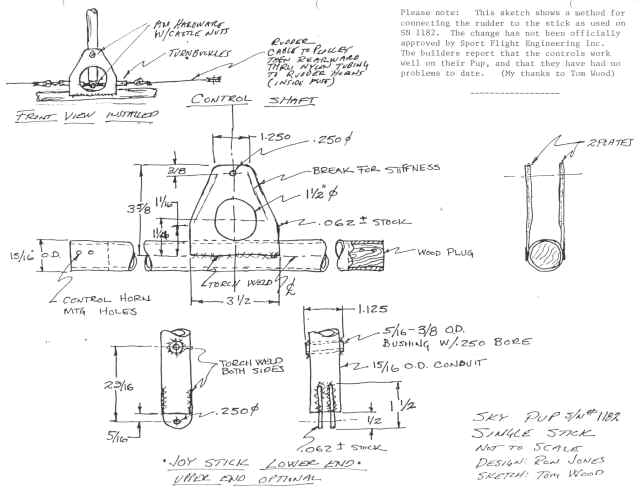 AN HARDWARE
W/CASTLE NUTS
TURNBUCKLES
RUDDER
CABLE TO PULLEY
THEN REARWARD
THRU NYLON TUBING
TO RUDDER HORNS
(INSIDE FUSE)
FRONT VIEW INSTALLED
Please note: This sketch shows a method for
connecting the rudder to the stick as used on
SN 1182. The change has not been officially
approved by Sport Flight Engineering Inc.
The builders report that the controls work
well on their Pup, and that they have had no
problems to date. (My thanks to Tom Wood)
CONTROL SHAFT
1.250
.250 φ
3/8
BREAK FOR STIFFNESS
1 1/2" φ
3 5/8
1 1/16
1 1/4
.062 ± STOCK
15/16" O.D.
WOOD PLUG
CONTROL HORN
MTG HOLES
TORCH WELD
℄
3 1/2
2 PLATES
1.125
5/16 - 3/8 O.D.
BUSHING W/.250 BORE
15/16 O.D. CONDUIT
TORCH WELD
BOTH SIDES
2 3/16
.250 φ
5/16
1 1/2
1/2
.062 ± STOCK
• JOY STICK LOWER END •
UPPER END OPTIONAL
SKY PUP S/N# 1182
SINGLE STICK
NOT TO SCALE
DESIGN: RON JONES
SKETCH: TOM WOOD